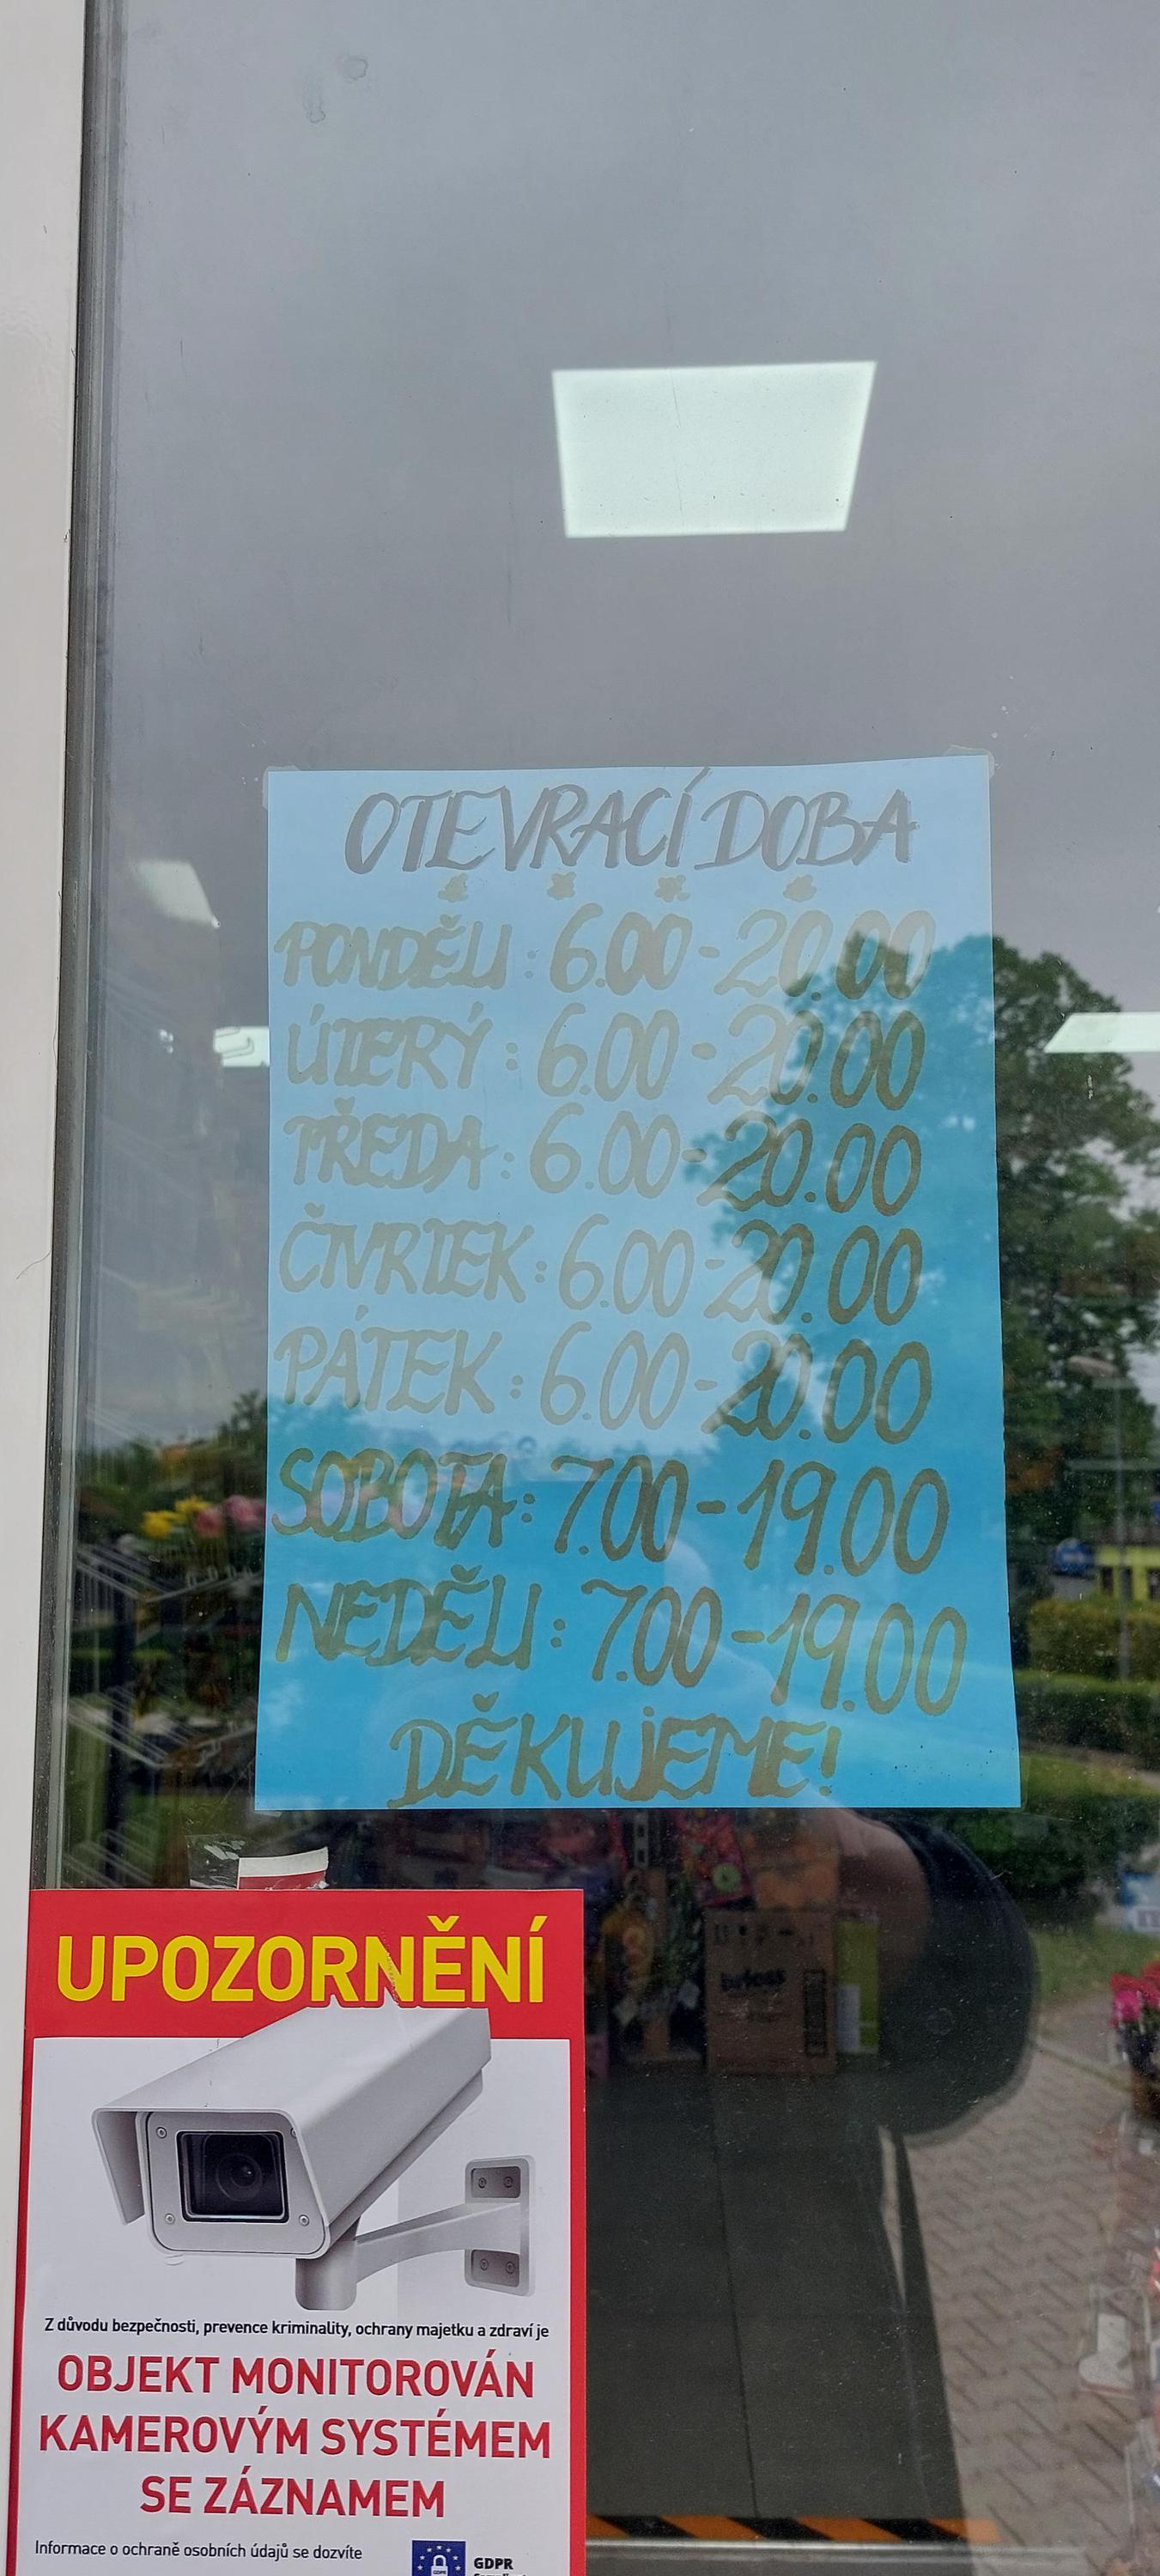 OTEVRACÍ DOBA
PONDĚLI : 6.00 - 20.00
ÚTERÝ : 6.00 - 20.00
TŘEDA : 6.00 - 20.00
ČTVRTEK : 6.00 - 20.00
PÁTEK : 6.00 - 20.00
SOBOTA : 7.00 - 19.00
NEDĚLI : 7.00 - 19.00
DĚKUJEME!
UPOZORNĚNÍ
Z důvodu bezpečnosti, prevence kriminality, ochrany majetku a zdraví je
OBJEKT MONITOROVÁN
KAMEROVÝM SYSTÉMEM
SE ZÁZNAMEM
Informace o ochraně osobních údajů se dozvíte
GDPR